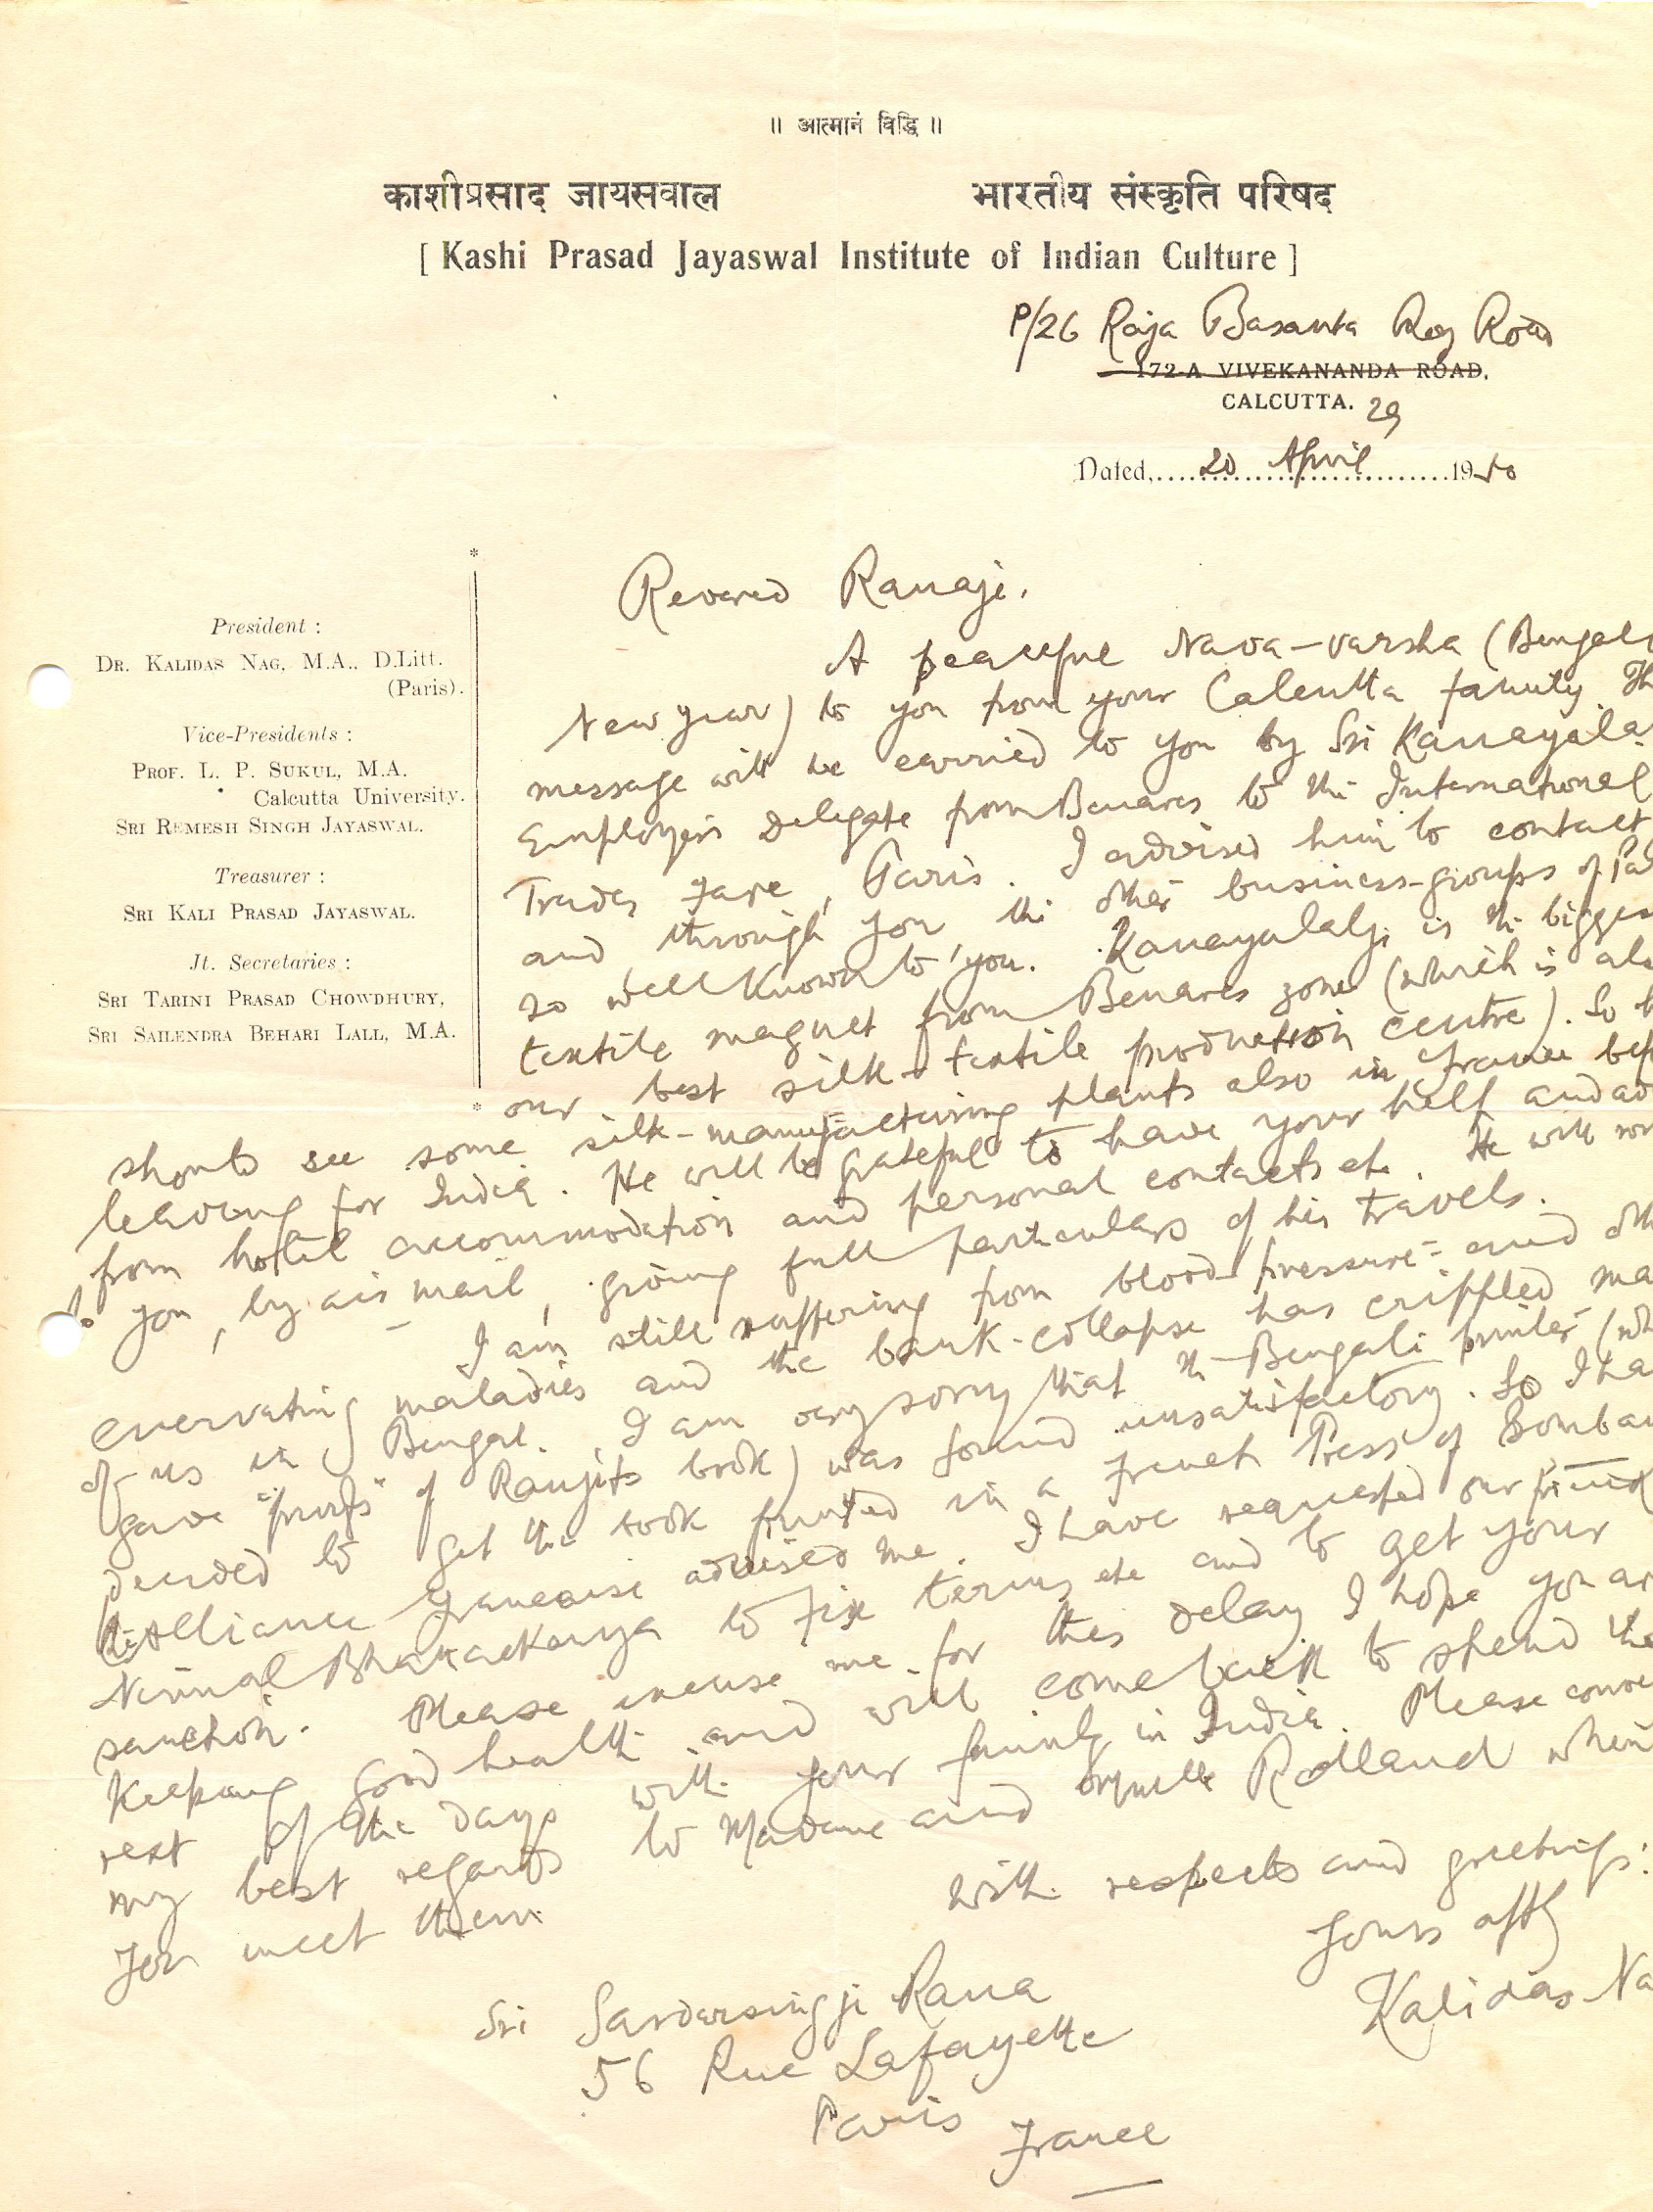 ॥ आत्मानं विद्धि ॥
काशीप्रसाद जायसवाल भारतीय संस्कृति परिषद
[ Kashi Prasad Jayaswal Institute of Indian Culture ]
P/26 Raja Basanta Roy Road
172-A VIVEKANANDA ROAD,
CALCUTTA. 29
Dated, 20 April 1950
President :
DR. KALIDAS NAG, M.A., D.Litt.
(Paris).
Vice-Presidents :
PROF. L. P. SUKUL, M.A.
Calcutta University.
SRI REMESH SINGH JAYASWAL.
Treasurer :
SRI KALI PRASAD JAYASWAL.
Jt. Secretaries :
SRI TARINI PRASAD CHOWDHURY,
SRI SAILENDRA BEHARI LALL, M.A.
Revered Ranaji,
A peaceful Nava-varsha (Bengali
New year) to you from your Calcutta family. Th
message will be carried to you by Sri Kanayala
Employers delegate from Benares to the International
Trades Fare, Paris. I advised him to contact
and through you the other business-groups of Pa
so well known to you. Kanayalalji is the bigges
textile magnet from Benares zone (which is als
our best silk-textile production centre). So h
should see some silk-manufacturing plants also in France bef
leaving for India. He will be grateful to have your help and ad
from hotel accommodation and personal contacts etc. He will
to you, by air mail, giving full particulars of his travels.
I am still suffering from blood-pressure and oth
enervating maladies and the bank-collapse has crippled ma
of us in Bengal. I am very sorry that the Bengali printer (wh
gave "proofs" of Ranjits book) was found unsatisfactory. So I ha
decided to get the book printed in a French Press of Bombay
Alliance Francaise advised me. I have requested our friend
Nirmal Bhattacharya to fix terms etc and to get your
sanction. Please excuse me for this delay. I hope you ar
keeping good health and will come back to spend the
rest of the days with your family in India. Please conve
my best regards to Madame and Mlle Rolland when
you meet them
With respects and greetings:
Yours affly
Kalidas Na
Sri Sardarsingji Rana
56 Rue Lafayette
Paris
France